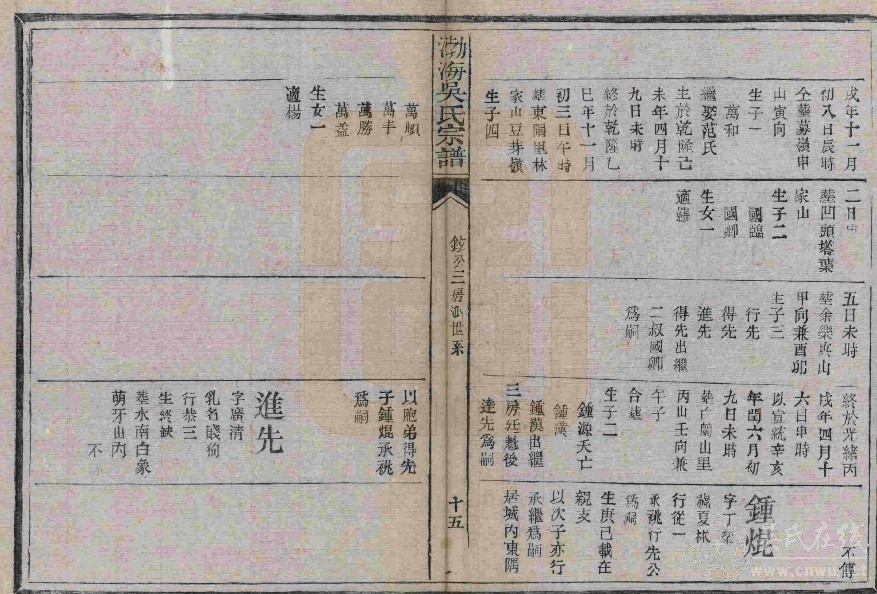 戌年十一月
初八日辰時
仝葬募嶺申
山寅向
生子一
萬和
繼娶范氏
生於乾隆己
未年四月十
九日未時
終於乾隆乙
巳年十一月
初三日午時
葬東陽里林
家山豆芽嶺
生子四
二日
葬凹頭塔葉
家山
生子二
國臨
國卿
生女一
適
五日未時
葬余樂真山
甲向兼酉卯
生子三
行先
得先
進先
得先出繼
二叔國卿
爲嗣
終於光緒丙
戌年四月十
六日申時
以宣統辛亥
年閏六月初
九日未時
葬白蘭山里
丙山壬向兼
午子
合葬
生子二
鍾源夭亡
鍾漢
鍾漢出繼
三房廷魁後
達先爲嗣
不傳
鍾焜
字丁
諱夏
行從一
承祧行先公
爲嗣
生庚已載在
親支
以次子亦行
承繼爲嗣
居城內東隅
渤海吳氏宗譜
公三房 世系
十五
萬順
萬丰
萬勝
萬益
生女一
適楊
以胞弟得先
子鍾焜承祧
爲嗣
進先
字廣清
乳名賤狗
行恭三
生終缺
葬水南白象
萌牙山內
不
吳氏在线
www.cnwu.net